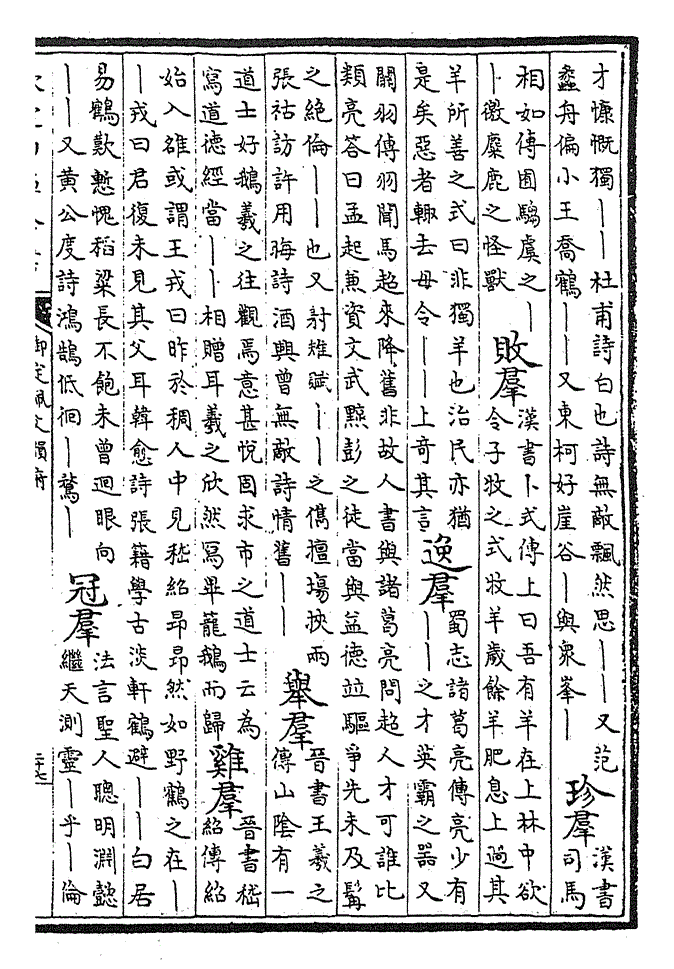 才慷慨獨｜｜杜甫詩白也詩無敵飄然思｜｜又范
蠡舟偏小王喬鶴｜｜又東柯好崖谷｜與衆峯｜
珍羣
漢書
司馬
相如傳囿騶虞之｜
｜徼麋鹿之怪獸
敗羣
漢書卜式傳上曰吾有羊在上林中欲
令子牧之式牧羊歲餘羊肥息上過其
羊所善之式曰非獨羊也治民亦猶
是矣惡者輙去毋令｜｜上奇其言
逸羣
蜀志諸葛亮傳亮少有
｜｜之才英霸之器又
關羽傳羽聞馬超來降舊非故人書與諸葛亮問超人才可誰比
類亮答曰孟起兼資文武黥彭之徒當與益德竝驅爭先未及髯
之絶倫｜｜也又射雉賦｜｜之儁擅塲挾兩
張祜訪許用晦詩酒興曾無敵詩情舊｜｜
舉羣
晉書王羲之
傳山陰有一
道士好鵝羲之往觀焉意甚悅固求市之道士云為
寫道德經當｜｜相贈耳羲之欣然冩畢籠鵝而歸
雞羣
晉書嵇
紹傳紹
始入雒或謂王戎曰昨於稠人中見嵇紹昂昂然如野鶴之在｜
｜戎曰君復未見其父耳韓愈詩張籍學古淡軒鶴避｜｜白居
易鶴歎慙愧稻粱長不飽未曾迴眼向
｜｜又黄公度詩鴻鵠低徊｜鶩｜
冠羣
法言聖人聰明淵懿
繼天測靈｜乎｜倫
御定佩文韻府